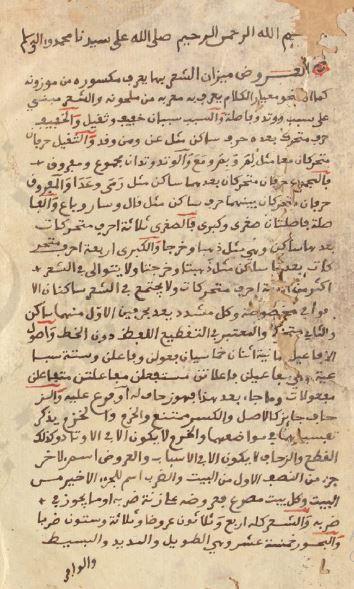 بسم الله الرحمن الرحيم صلى الله على سيدنا محمد وآله وسلم
العروض ميزان الشعر بها يعرف مكسوره من موزونه
كما ان النحو معيار الكلام يعرف به معربه من ملحونه والشعر مبني
على سبب ووتد وفاصلة والسبب سببان خفيف وثقيل والخفيف
حرف متحرك بعده حرف ساكن مثل عن ومن وقد والثقيل حرفان
متحركان معا مثل لم وبم ومع والوتد وتدان مجموع ومفروق
فالمجموع حرفان متحركان بعدهما ساكن مثل رمى وعدا والمفروق
حرفان متحركان بينهما حرف ساكن مثل قال وسار وباع والفا
صلة فاصلتان صغرى وكبرى فالصغرى ثلاثة احرف متحركات
بعدها ساكن وهي مثل ذهبا وخرجا والكبرى اربعة احرف متحر
كات بعدها ساكن مثل ولا يتوالى في الشعر
اكثر من اربعة احرف متحركات ولا يجتمع في الشعر ساكنان الا
في قواف مخصوصة وكل مشدد يعد بحرفين الاول منهما ساكن
والثاني متحرك والمعتبر في التقطيع اللفظ دون الخط واصول
الافاعيل ثمانية اثنان خماسيان فعولن وفاعلن وستة سبا
عية وهي مفاعيلن فاعلاتن مستفعلن مفاعلتن متفاعلن
مفعولات وما جاء بعد هذا فهو زحاف له او فرع عليه والز
حاف جائز كالاصل والكسر ممتنع والخرم والخزم يذكر
تفسيرهما في مواضعها والخرم لا يكون الا في الاوتاد وكذلك
القطع والزحاف لا يكون الا في الاسباب والعروض اسم لاخر
جزء من النصف الاول من البيت والضرب اسم للجزء الاخير من
البيت وكل بيت مصرع فعروضه على زنة ضربه او ما يجوز في
ضربه والشعر كله اربع وثلاثون عروضا وثلاثة وستون ضربا
والبحور خمسة عشر وهي الطويل والمديد والبسيط
والوافر